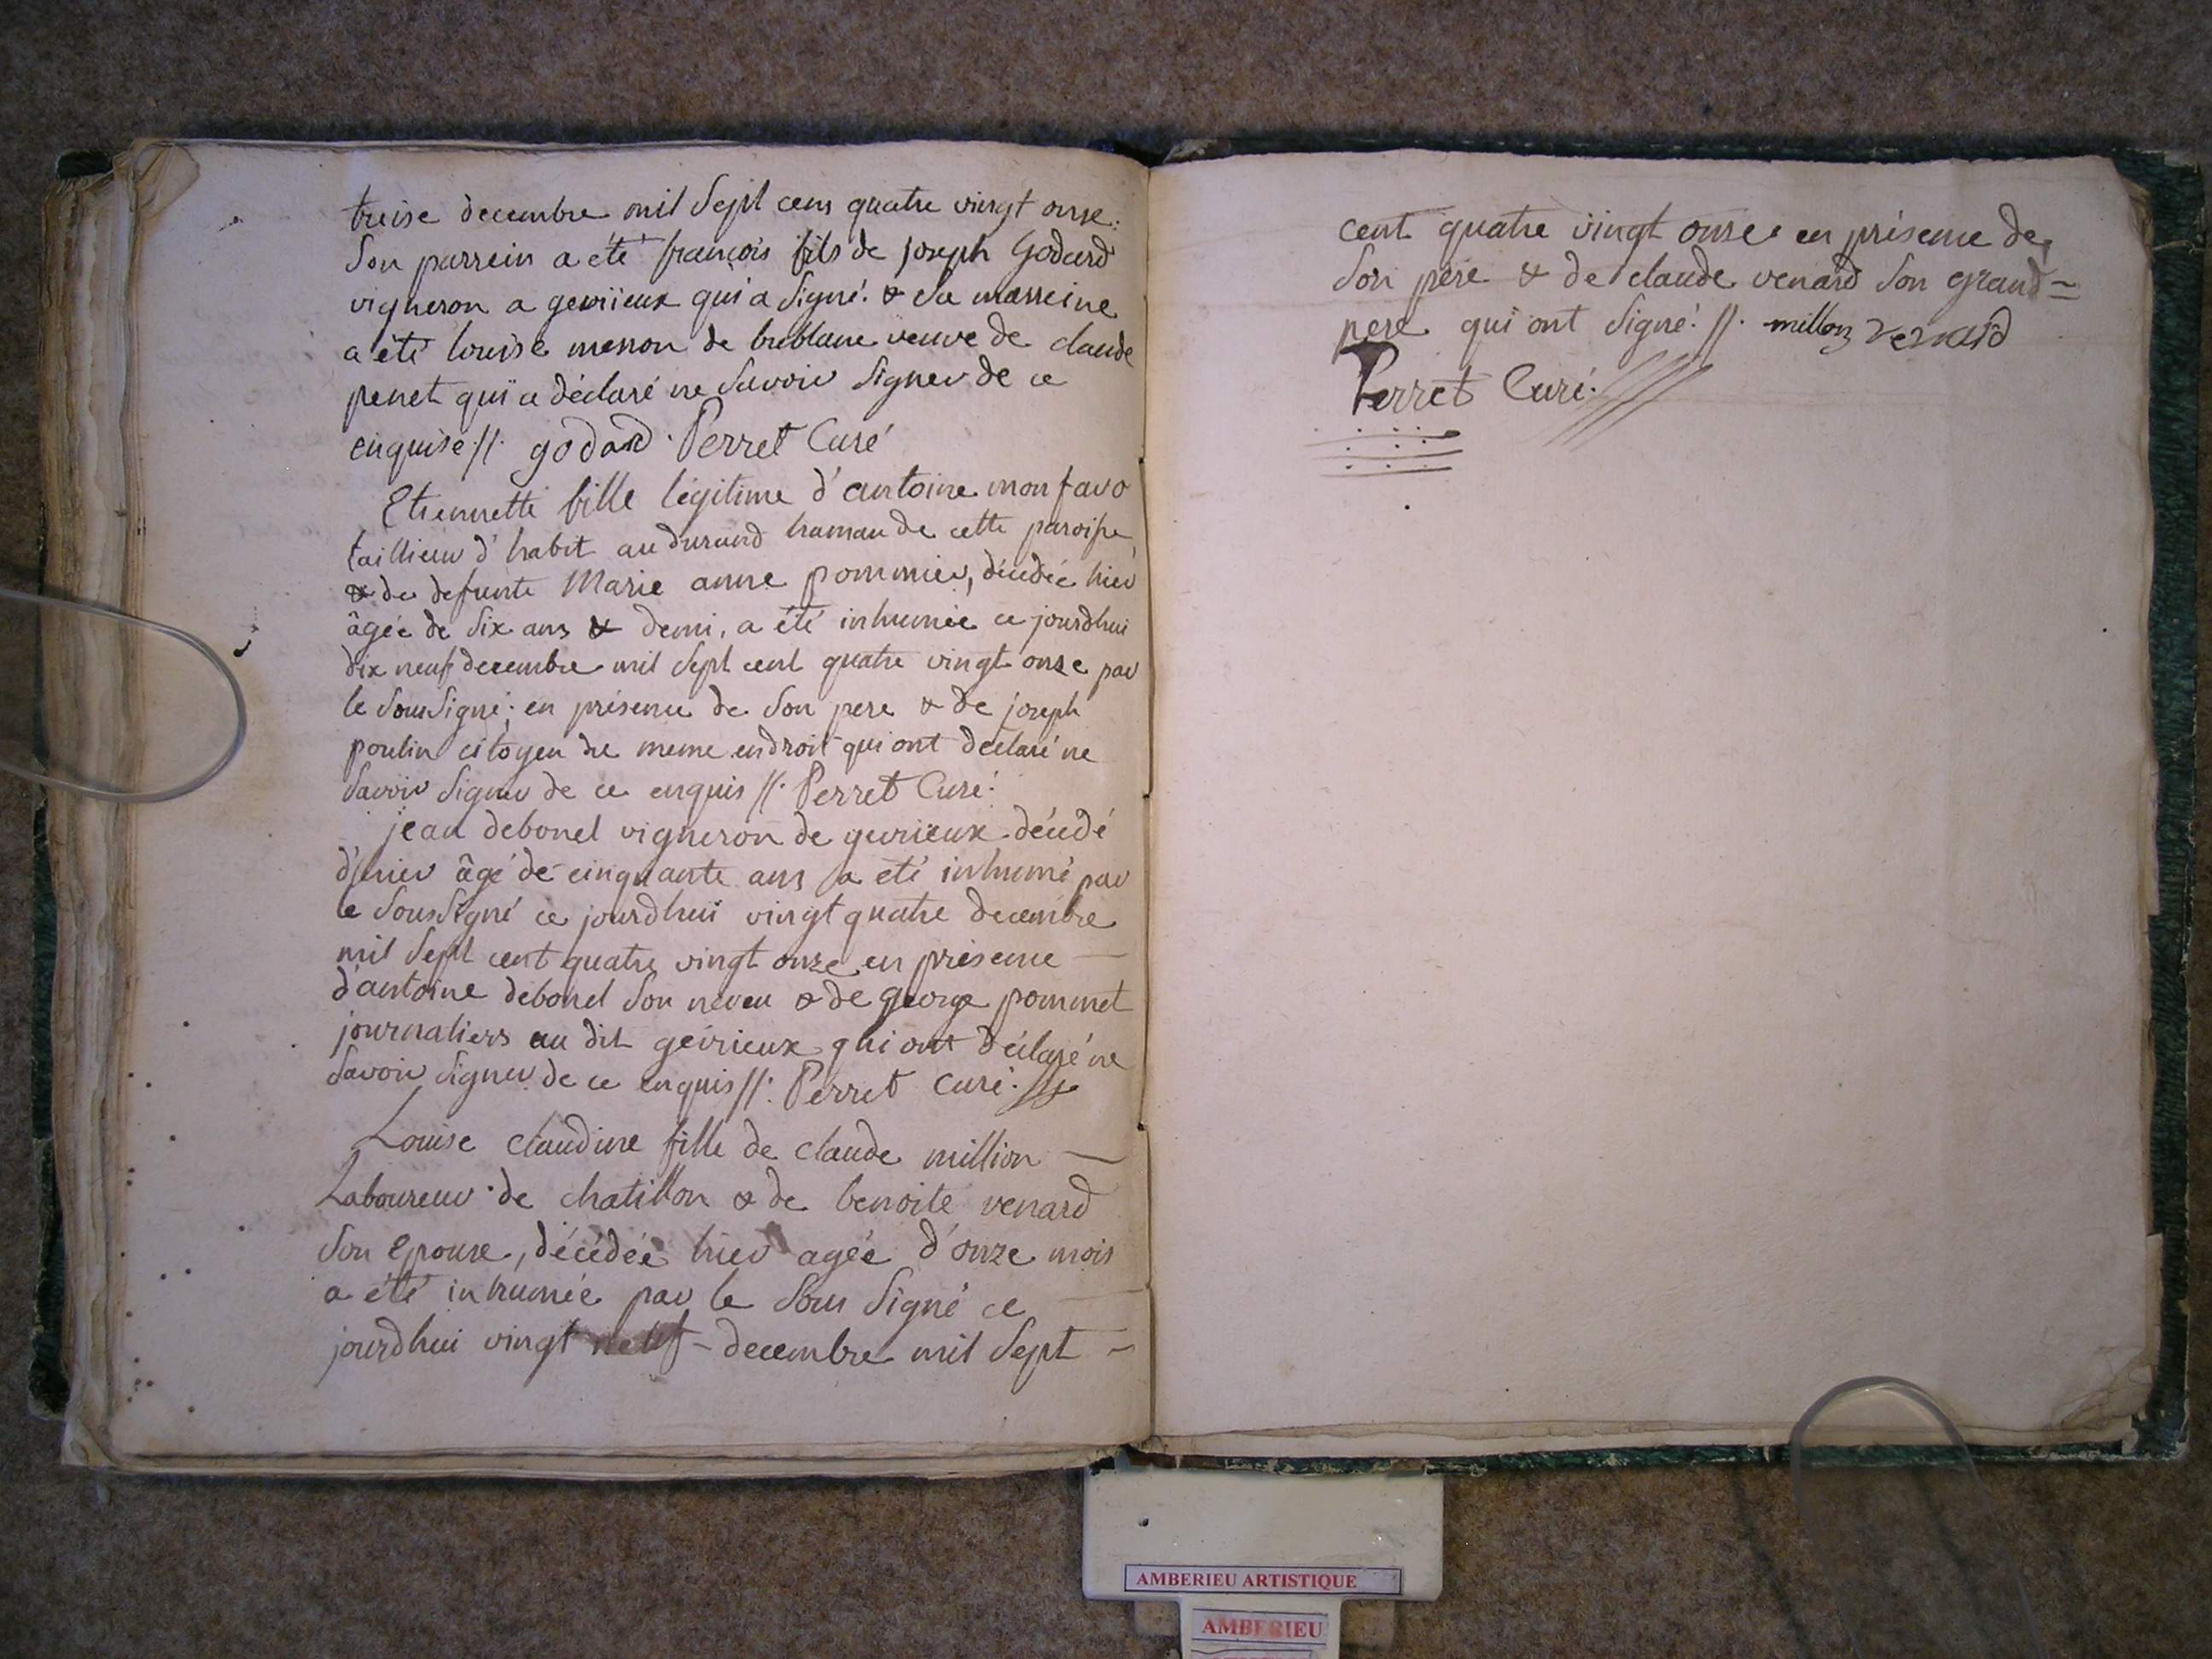 treise decembre mil Sept cens quatre vingt onse.
Son parrein a été françois fils de joseph Godard
vigneron a gevrieux qui a Signé. & Sa marreine
a été louise menon de bublane veuve de claude
penet qui a déclaré ne Savoir Signer de ce
enquise //. godard. Perret Curé
Etiennette fille légitime d'antoine monfavo
taillieur d'habit au durand hamau de cette paroisse,
& de defunte Marie anne pommier, décédée hier
âgée de Six ans & demi, a été inhumée ce jourdhui
dix neuf decembre mil Sept cent quatre vingt onse par
le SousSigné; en présence de Son pere & de joseph
poulin citoyen du meme endroit qui ont declaré ne
Savoir Signer de ce enquis //. Perret Curé.
jean debonel vigneron de gevrieux décédé
d'hier âgé de cinquante ans a été inhumé par
le SousSigné ce jourdhui vingt quatre decembre
mil Sept cent quatre vingt onze en présence
d'antoine debonel Son neveu & de george pommet
journaliers au dit gévrieux qui ont déclaré ne
Savoir Signer de ce enquis //. Perret Curé.
Louise claudine fille de claude million
Laboureur de chatillon & de benoite venard
Son epouse, décédée hier agée d'onze mois
a été inhumée par le Sous Signé ce
jourdhui vingt neuf - decembre mil Sept -
cent quatre vingt onse en présence de
Son pere & de claude venard Son grand=
pere qui ont Signé. //. millon venard
Perret Curé.
AMBERIEU ARTISTIQUE
AMBERIEU